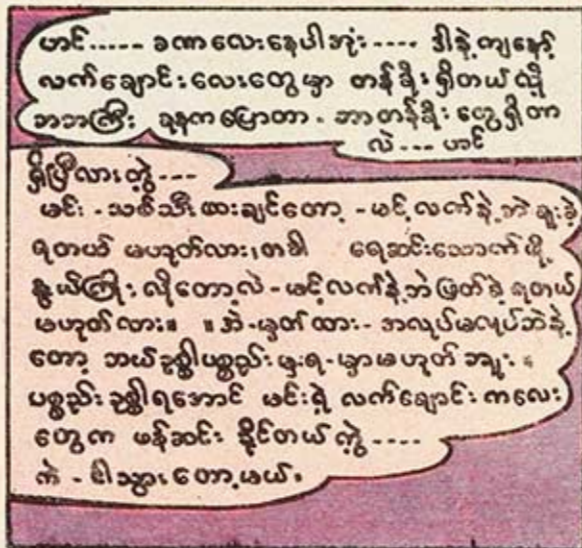 ဟင်..... ခဏလေးနေပါအုံး.... ဒါနဲ့ကျနော့်
လက်ချောင်းလေးတွေမှာ တန်ခိုးရှိတယ်လို့
အဘကြီး ခုနကပြောတာ - ဘာတန်ခိုးတွေရှိတာ
လဲ --- ဟင်
ရှိပြီလားတဲ့ ---
မင်း - သစ်သီးထားချင်တော့ - မင့်လက်နဲ့ဘဲ ချူးခဲ့
ရတယ် မဟုတ်လား၊ တခါ ရေဆင်းသောက်ဖို့
နွယ်ကြိုးလိုတော့လဲ - မင့်လက်နဲ့ဘဲဖြတ်ခဲ့ရတယ်
မဟုတ်လား။ ။အဲ - မှတ်ထား - အလုပ်မလုပ်ဘဲနဲ့
တော့ ဘယ်ဥစ္စာပစ္စည်းမှရ - မှာမဟုတ်ဘူး ။
ပစ္စည်းဥစ္စာရအောင် မင်းရဲ့ လက်ချောင်းကလေး
တွေက ဖန်ဆင်းနိုင်တယ်ကွဲ့ ....
ကဲ - ငါသွားတော့မယ်။